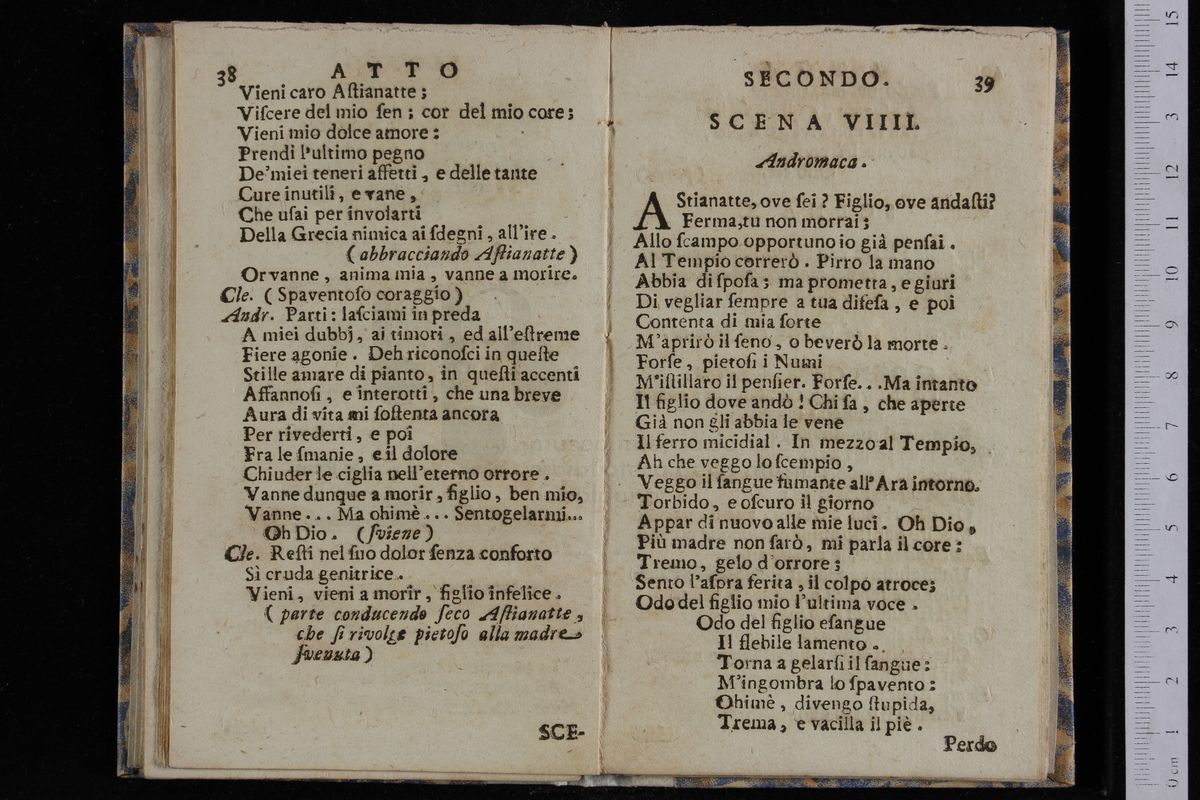 38 ATTO
Vieni caro Aſtianatte;
Viſcere del mio ſen; cor del mio core;
Vieni mio dolce amore:
Prendi l'ultimo pegno
De'miei teneri affetti, e delle tante
Cure inutili, e vane,
Che uſai per involarti
Della Grecia nimica ai ſdegni, all'ire.
(abbracciando Aſtianatte)
Or vanne, anima mia, vanne a morire.
Cle. (Spaventoſo coraggio)
Andr. Parti: laſciami in preda
A miei dubbj, ai timori, ed all'eſtreme
Fiere agonie. Deh riconoſci in queſte
Stille amare di pianto, in queſti accenti
Affannoſi, e interotti, che una breve
Aura di vita mi ſoſtenta ancora
Per rivederti, e poi
Fra le ſmanie, e il dolore
Chiuder le ciglia nell'eterno orrore.
Vanne dunque a morir, figlio, ben mio,
Vanne... Ma ohimè... Sento gelarmi...
Oh Dio. (ſviene)
Cle. Reſti nel ſuo dolor ſenza conforto
Sì cruda genitrice.
Vieni, vieni a morir, figlio infelice.
(parte conducendo ſeco Aſtianatte,
che ſi rivolge pietoſo alla madre
ſvenuta)
SCE-
SECONDO. 39
SCENA VIIII.
Andromaca.
AStianatte, ove ſei? Figlio, ove andaſti?
Ferma, tu non morrai;
Allo ſcampo opportuno io già penſai.
Al Tempio correrò. Pirro la mano
Abbia di ſpoſa; ma prometta, e giuri
Di vegliar ſempre a tua difeſa, e poi
Contenta di mia ſorte
M'aprirò il ſeno, o beverò la morte.
Forſe, pietoſi i Numi
M'iſtillaro il penſier. Forſe...Ma intanto
Il figlio dove andò! Chi ſa, che aperte
Già non gli abbia le vene
Il ferro micidial. In mezzo al Tempio,
Ah che veggo lo ſcempio,
Veggo il ſangue fumante all'Ara intorno.
Torbido, e oſcuro il giorno
Appar di nuovo alle mie luci. Oh Dio,
Più madre non ſarò, mi parla il core:
Tremo, gelo d'orrore;
Sento l'aſpra ferita, il colpo atroce;
Odo del figlio mio l'ultima voce.
Odo del figlio eſangue
Il flebile lamento.
Torna a gelarſi il ſangue:
M'ingombra lo ſpavento:
Ohimè, divengo ſtupida,
Trema, e vacilla il piè.
Perdo
0 cm 1 2 3 4 5 6 7 8 9 10 11 12 3 14 15